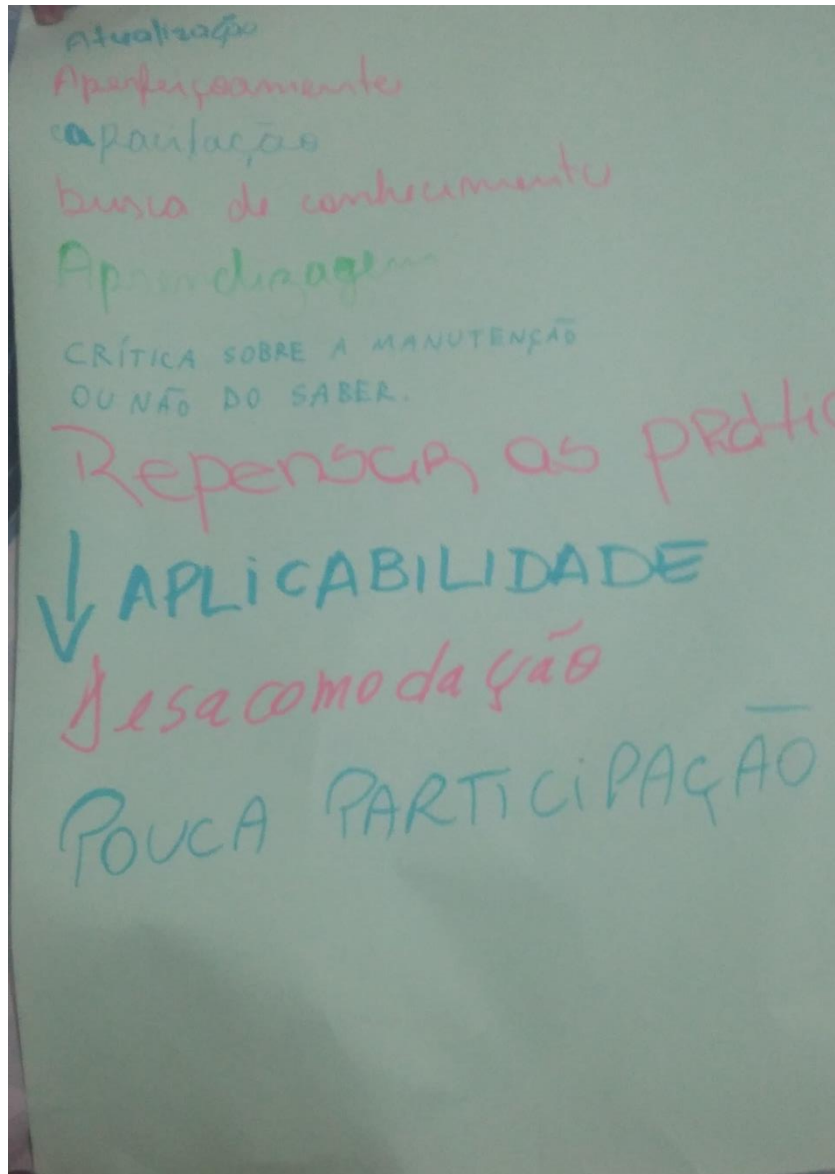 Atualização
Aperfeiçoamento
capacitação
busca de conhecimento
Aprendizagem
CRÍTICA SOBRE A MANUTENÇÃO
OU NÃO DO SABER.
Repensar as prátic
↓ APLICABILIDADE
desacomodação
POUCA PARTICIPAÇÃO